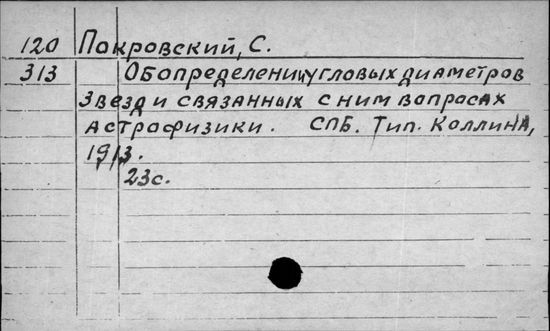 120 Покровский, С.
313 Об определении угловых диаметров
звезд и связанных с ним вопросах
астрофизики. СПБ. Тип. Коллина,
1913.
23с.